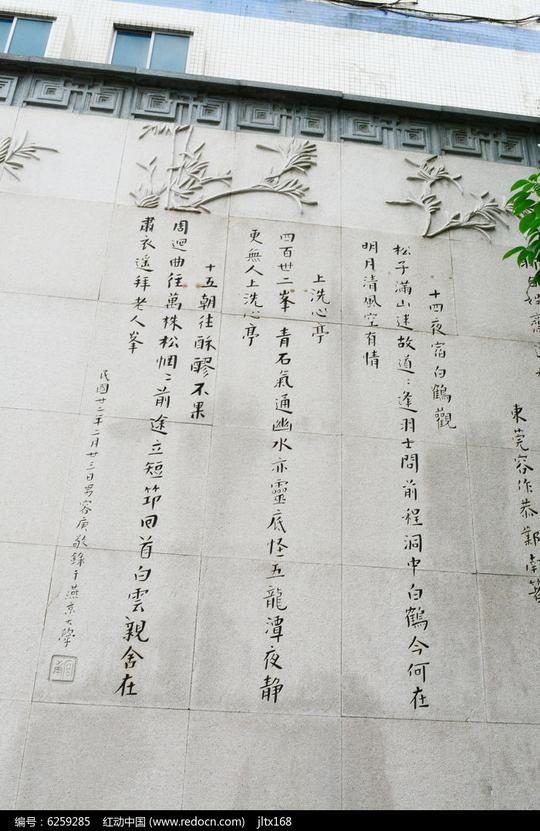 東莞容作恭鄞南著
十四夜宿白鶴觀
松子滿山迷故道〻逢羽士問前程洞中白鶴今何在
明月清風空有情
上洗心亭
四百卅二峯青石氣通幽水亦靈底怪五龍潭夜靜
更無人上洗心亭
十五朝往酥醪不果
周迴曲往萬株松惆〻前途立短筇回首白雲親舍在
肅衣遥拜老人峯
民國廿二年二月廿三日男容庚敬錄于燕京大學
编号：6259285 红动中国 (www.redocn.com) jltx168